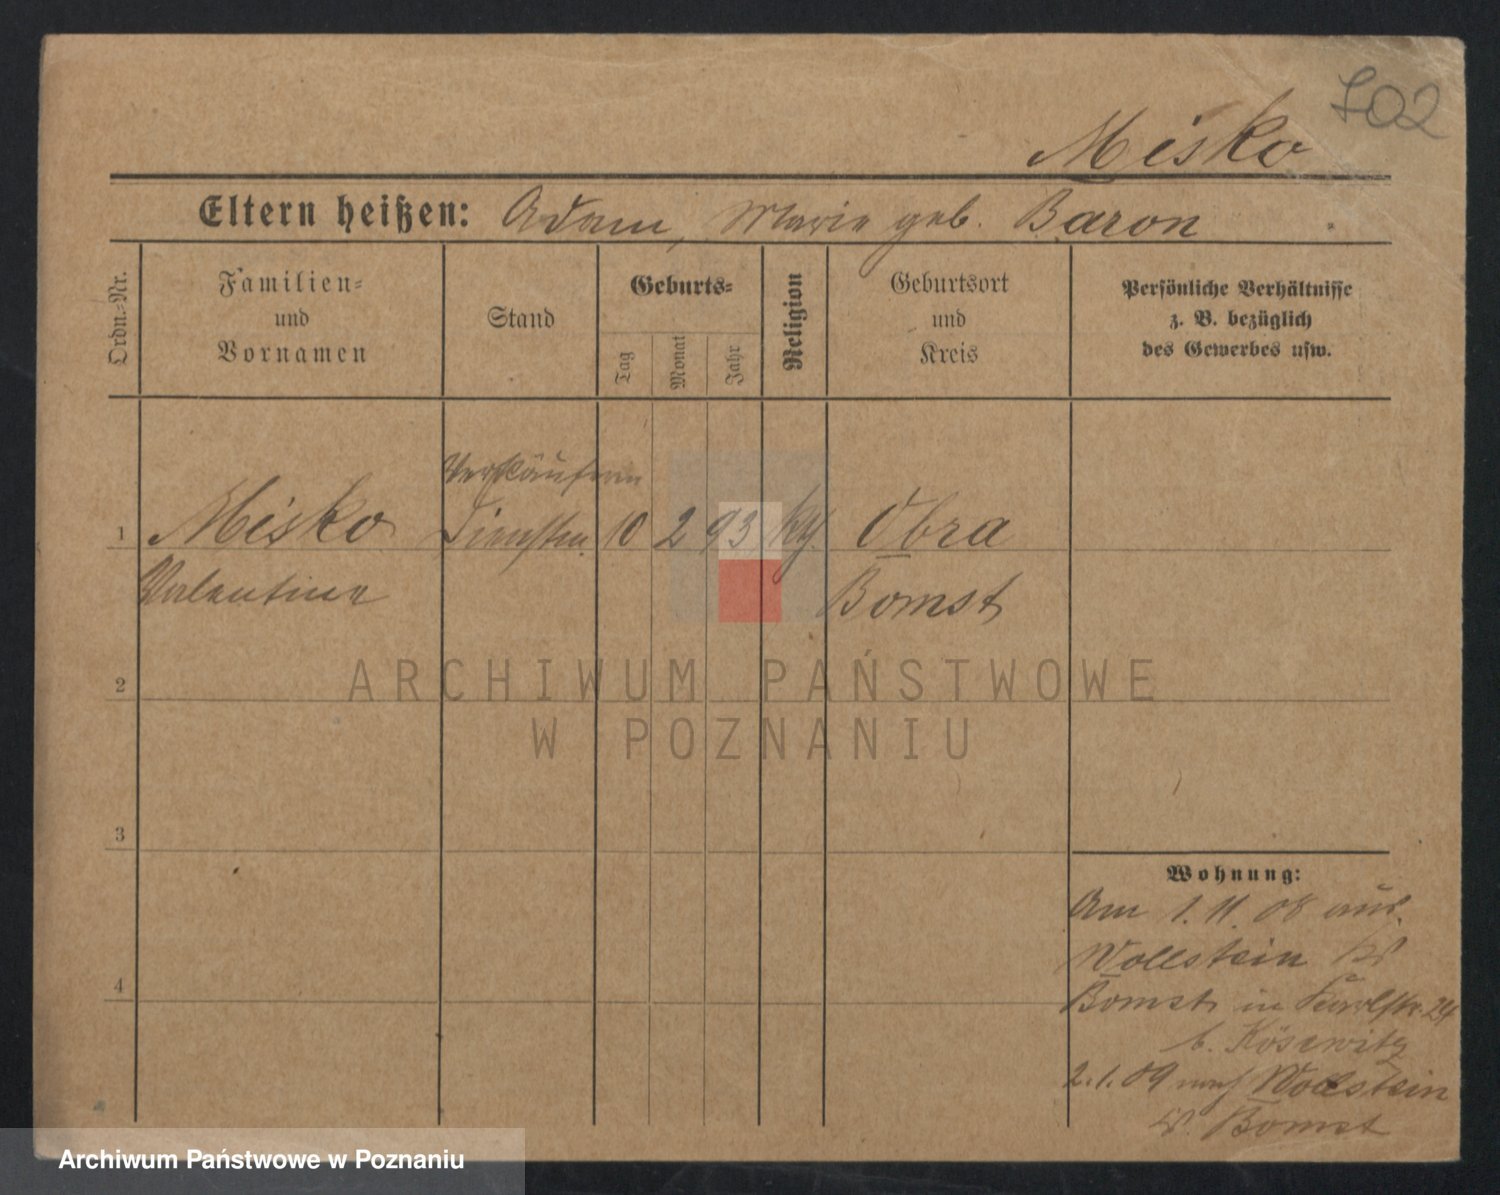 702
Misko
Eltern heißen: Adam, Marie geb. Baron
Ordn.-Nr.
Familien- und Vornamen
Stand
Geburts-
Tag
Monat
Jahr
Religion
Geburtsort und Kreis
Persönliche Verhältnisse
z. B. bezüglich
des Gewerbes usw.
Verkäuferin
1 Misko Dienstm. 10 2 93 kth. Obra
Valentine Bomst
2
3
4
Wohnung:
Am 1. 11. 08 aus
Wollstein Kr
Bomst in Karlstr. 24
b. Kösewitz
2. 1. 09 nach Wollstein
Kr. Bomst
ARCHIWUM PAŃSTWOWE
W POZNANIU
Archiwum Państwowe w Poznaniu